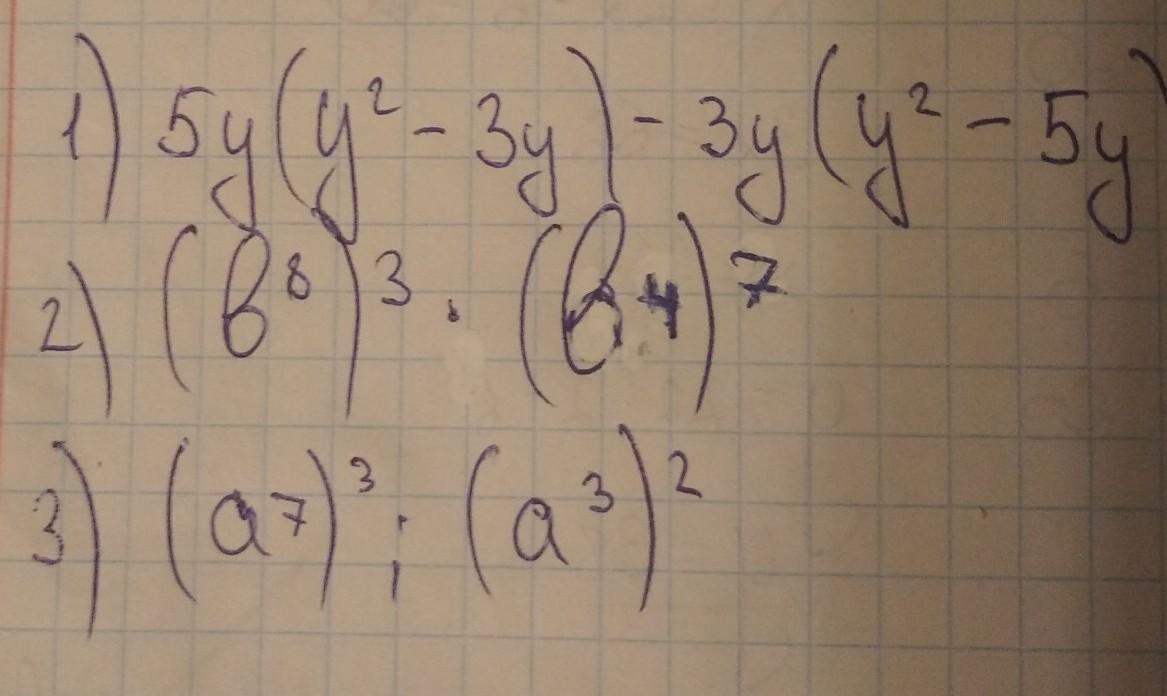 1) 5y(y² - 3y) - 3y(y² - 5y)
2) (b⁸)³ · (b⁴)⁷
3) (a⁷)³ ; (a³)²